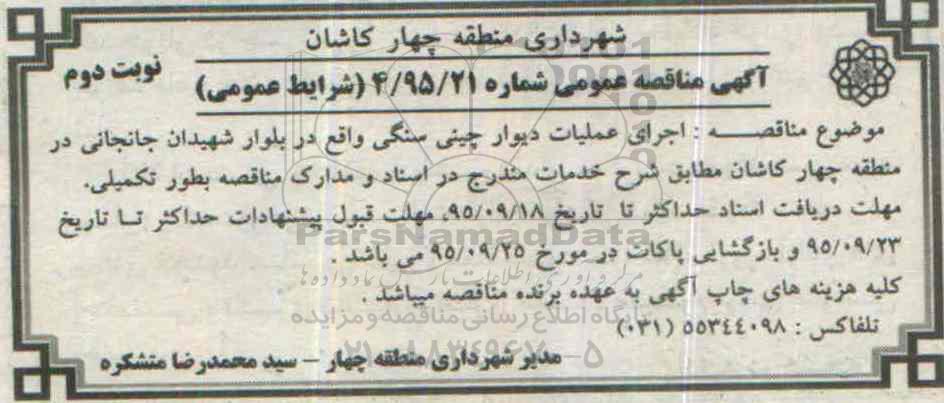 شهرداری منطقه چهار کاشان
نوبت دوم
آگهی مناقصه عمومی شماره ۴/۹۵/۲۱ (شرایط عمومی)
موضوع مناقصـــه : اجرای عملیات دیوار چینی سنگی واقع در بلوار شهیدان جانجانی در
منطقه چهار کاشان مطابق شرح خدمات مندرج در اسناد و مدارک مناقصه بطور تکمیلی.
مهلت دریافت اسناد حداکثر تا تاریخ ۹۵/۰۹/۱۸، مهلت قبول پیشنهادات حداکثر تــا تاریخ
۹۵/۰۹/۲۳ و بازگشایی پاکات در مورخ ۹۵/۰۹/۲۵ می باشد .
ParsNamadData
کلیه هزینه های چاپ آگهی به عهده برنده مناقصه میباشد .
پایگاه اطلاع رسانی مناقصه و مزایده
تلفاکس : ۵۵۳۴۴۰۹۸ (۰۳۱)
مدیر شهرداری منطقه چهار – سید محمدرضا متشکره